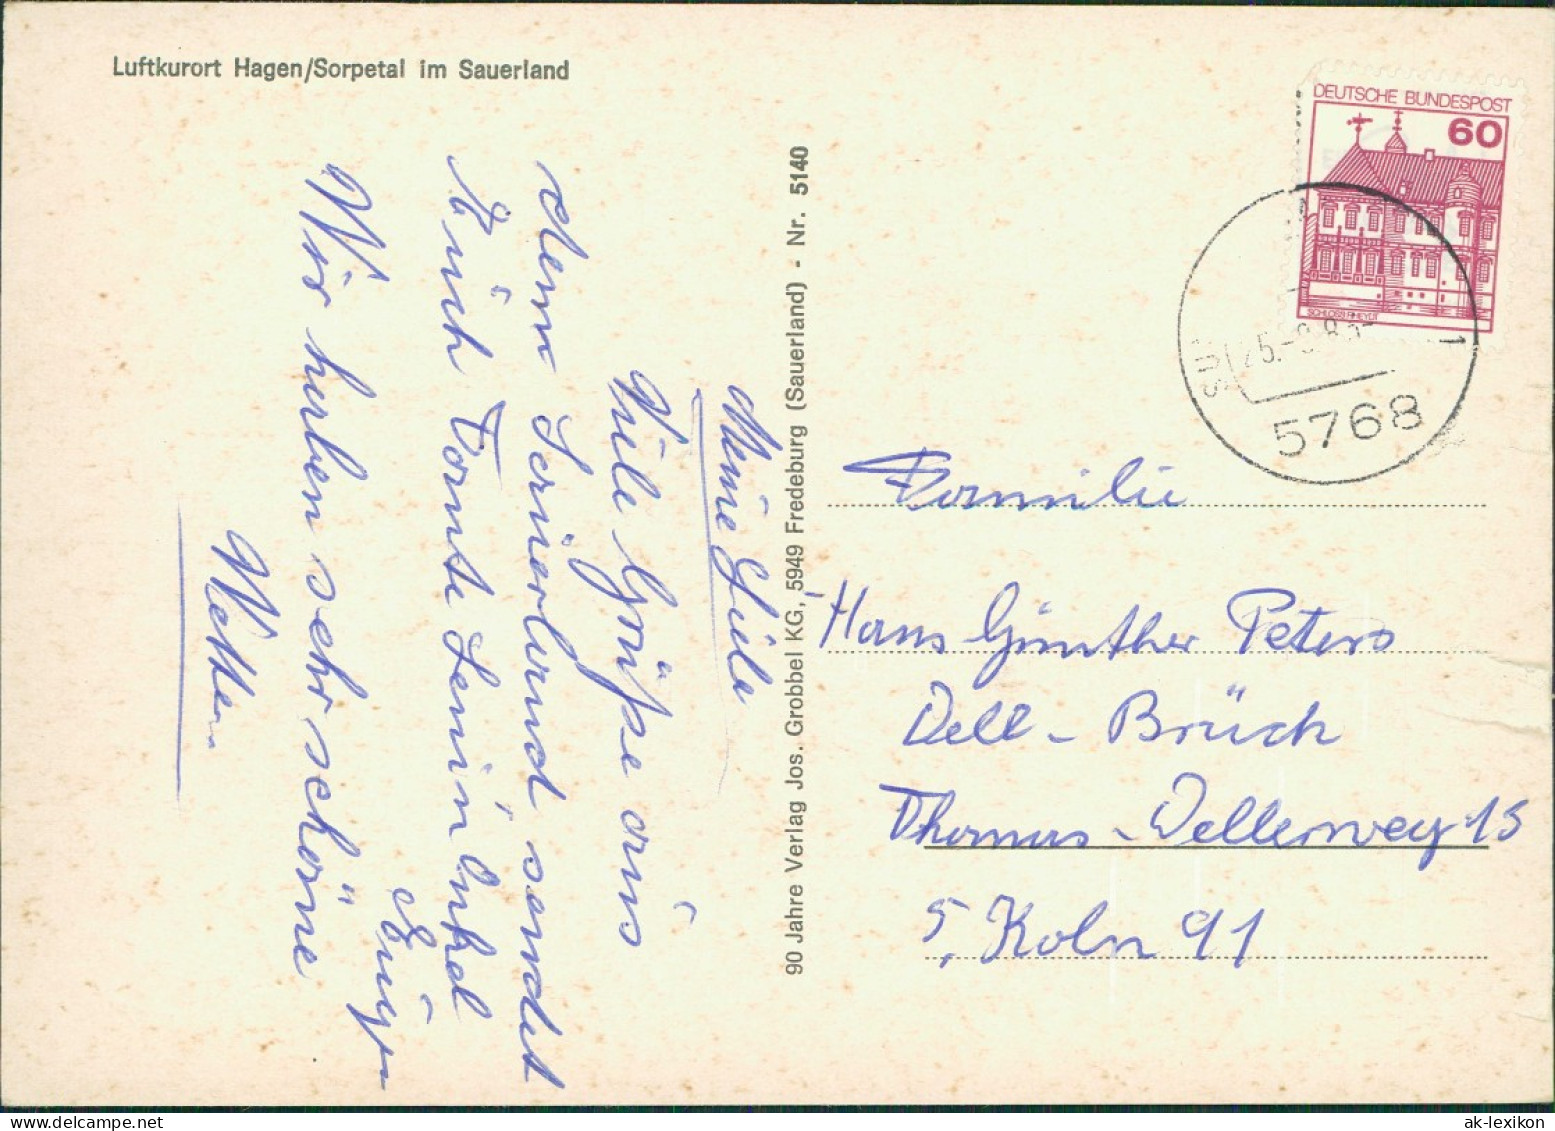 Luftkurort Hagen/Sorpetal im Sauerland
DEUTSCHE BUNDESPOST
60
SCHLOSS RHEYDT
5768
1
90 Jahre Verlag Jos. Grobbel KG, 5949 Fredeburg (Sauerland) - Nr. 5140
Meine
Viele Grüße aus
dem Sauerland sendet
Euch Tante Leni Onkel
Wir haben sehr schöne
Wetter
Familie
Hans Günther Peters
Dell-Brück
Thomas-Dellerweg 15
5, Köln 91
ak-lexikon